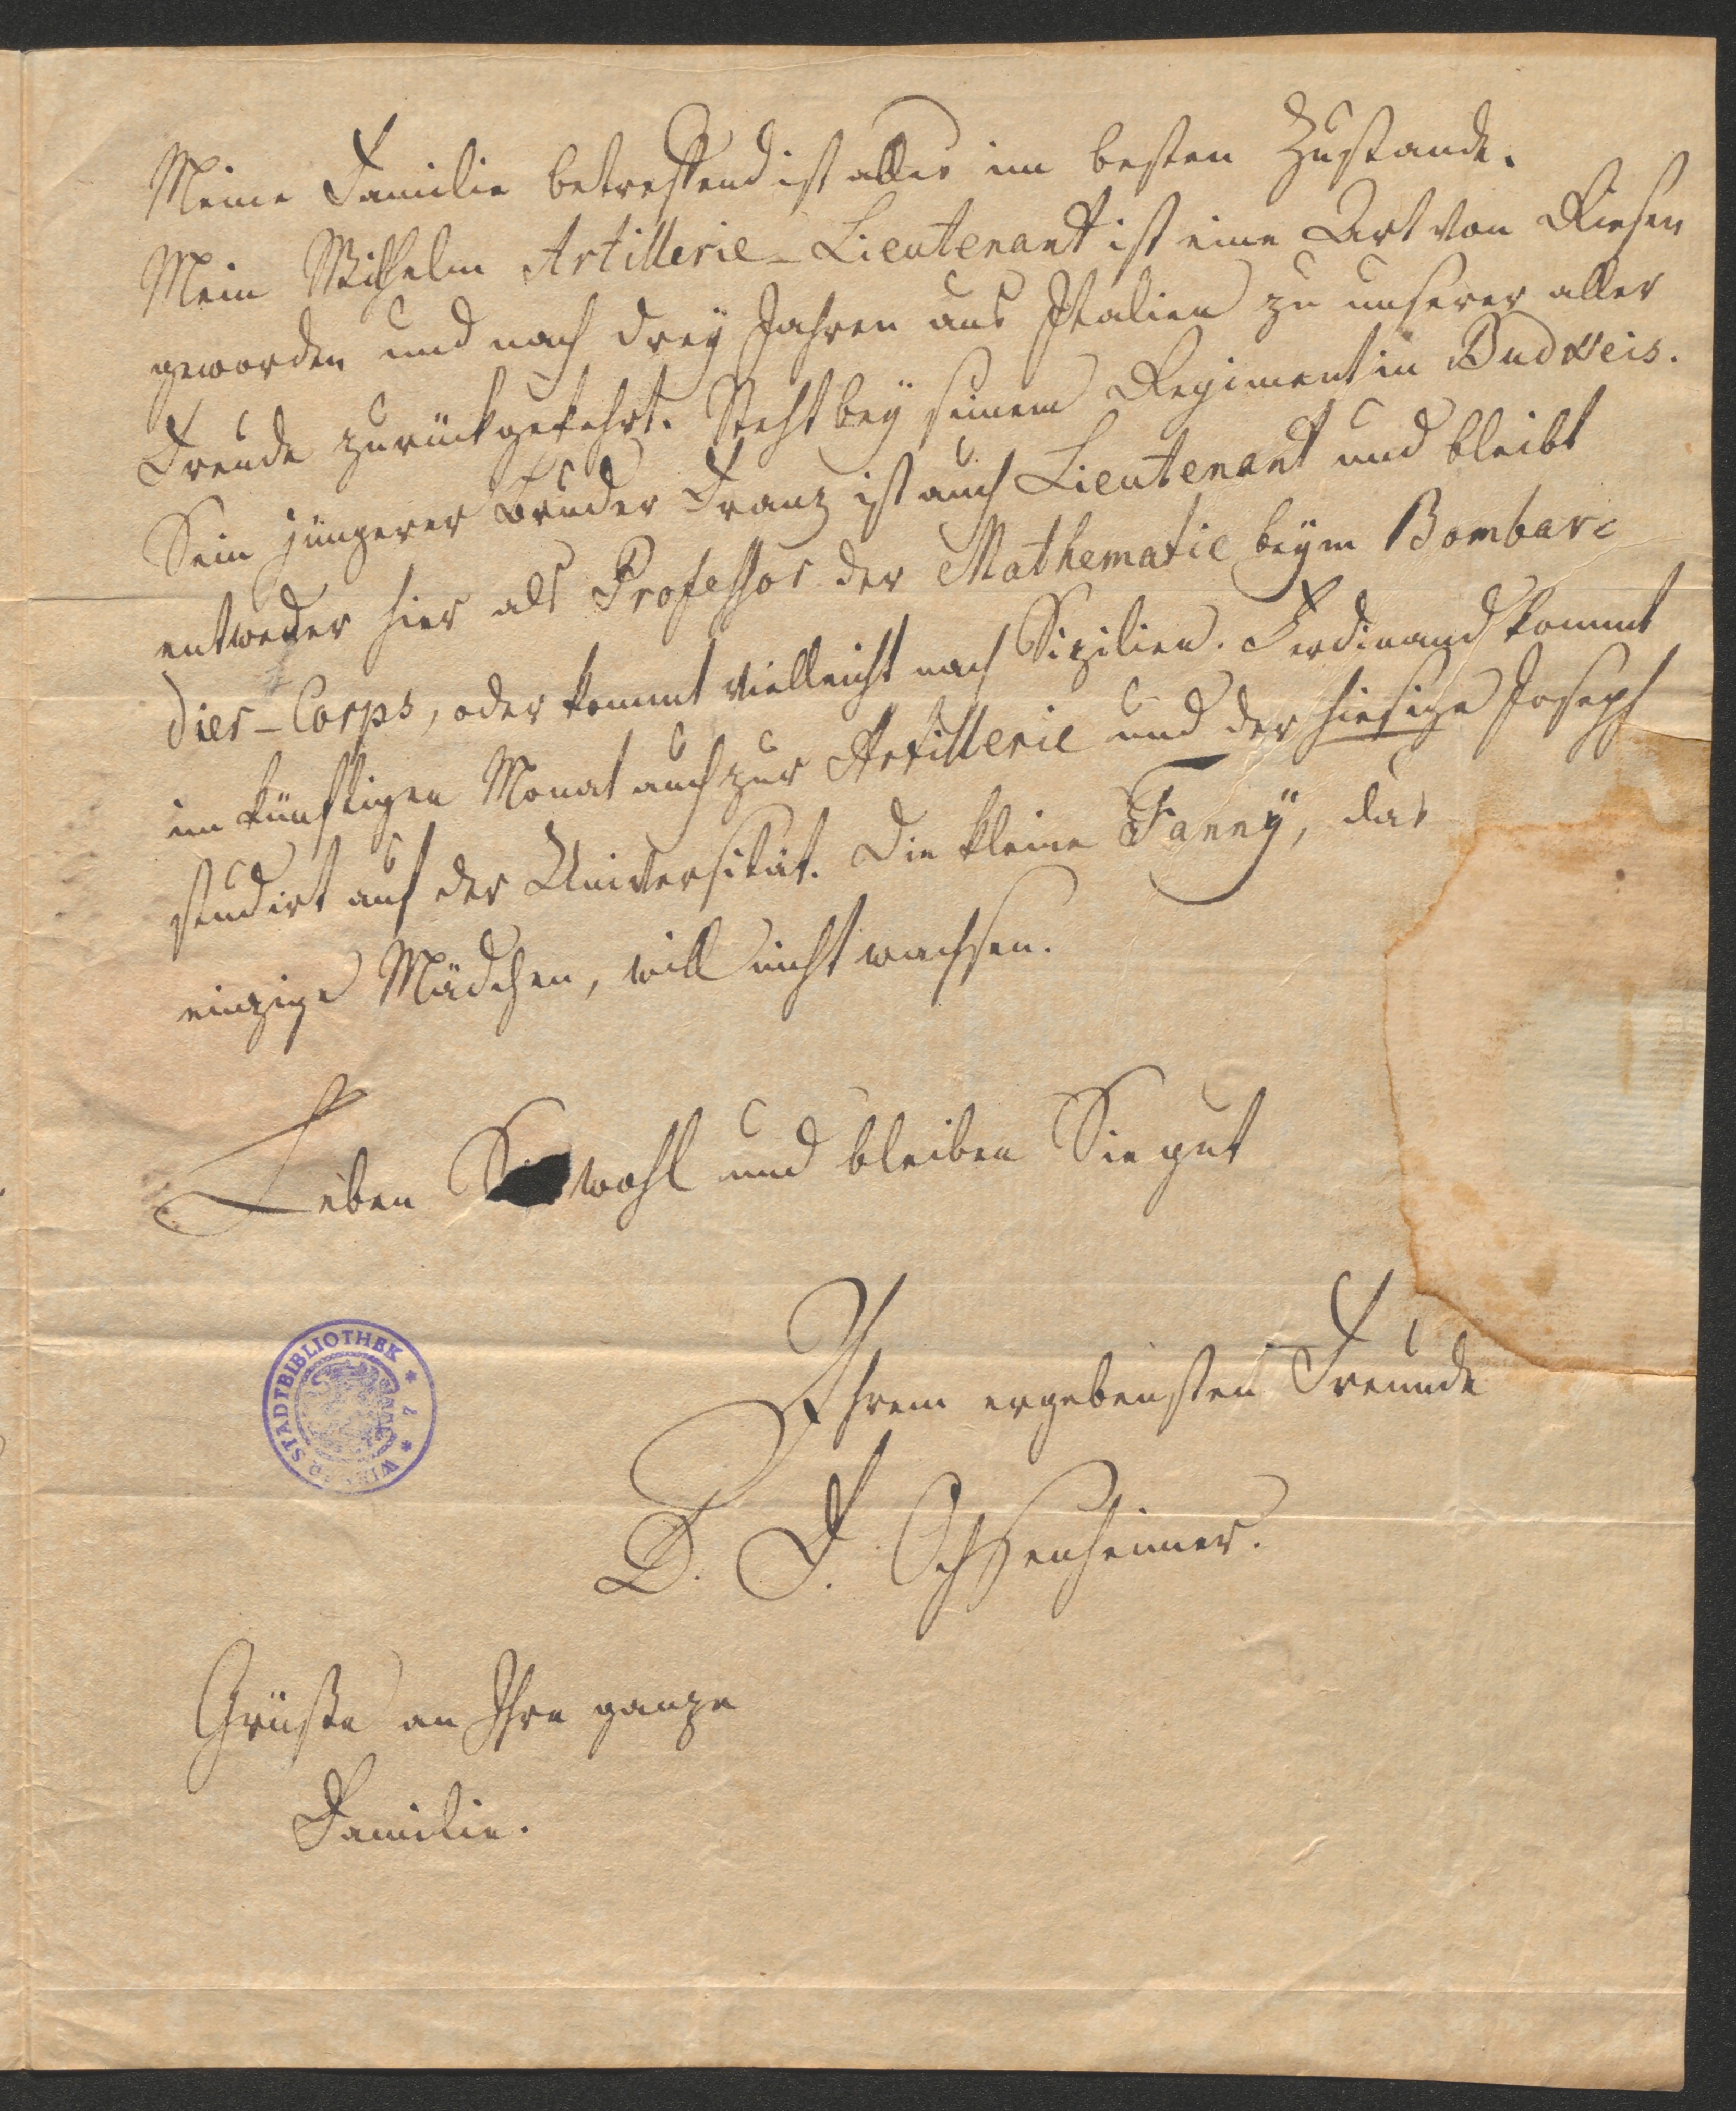 Meine Familie betreffend ist alles im besten Zustande.
Mein Wilhelm Artillerie-Lieutenant ist eine Art von Riesen
geworden und nach drey Jahren aus Italien zu unserer aller
Freude zurückgekehrt. Steht bey seinem Regiment in Budweis.
Sein jüngerer Bruder Franz ist auch Lieutenant und bleibt
entweder hier als Professor der Mathematic beym Bombar=
dier-Corps, oder kommt vielleicht nach Sizilien. Ferdinand kommt
im künftigen Monat auch zur Artillerie und der hiesige Joseph
studirt auf der Universität. Die kleine Fanny, das
einzige Mädchen, will nicht wachsen.
Leben Sie wohl und bleiben Sie gut
Ihrem ergebensten Freunde
D. F. Ochsenheimer.
WIENER STADTBIBLIOTHEK * 2 *
Grüße an Ihre ganze
Familie.